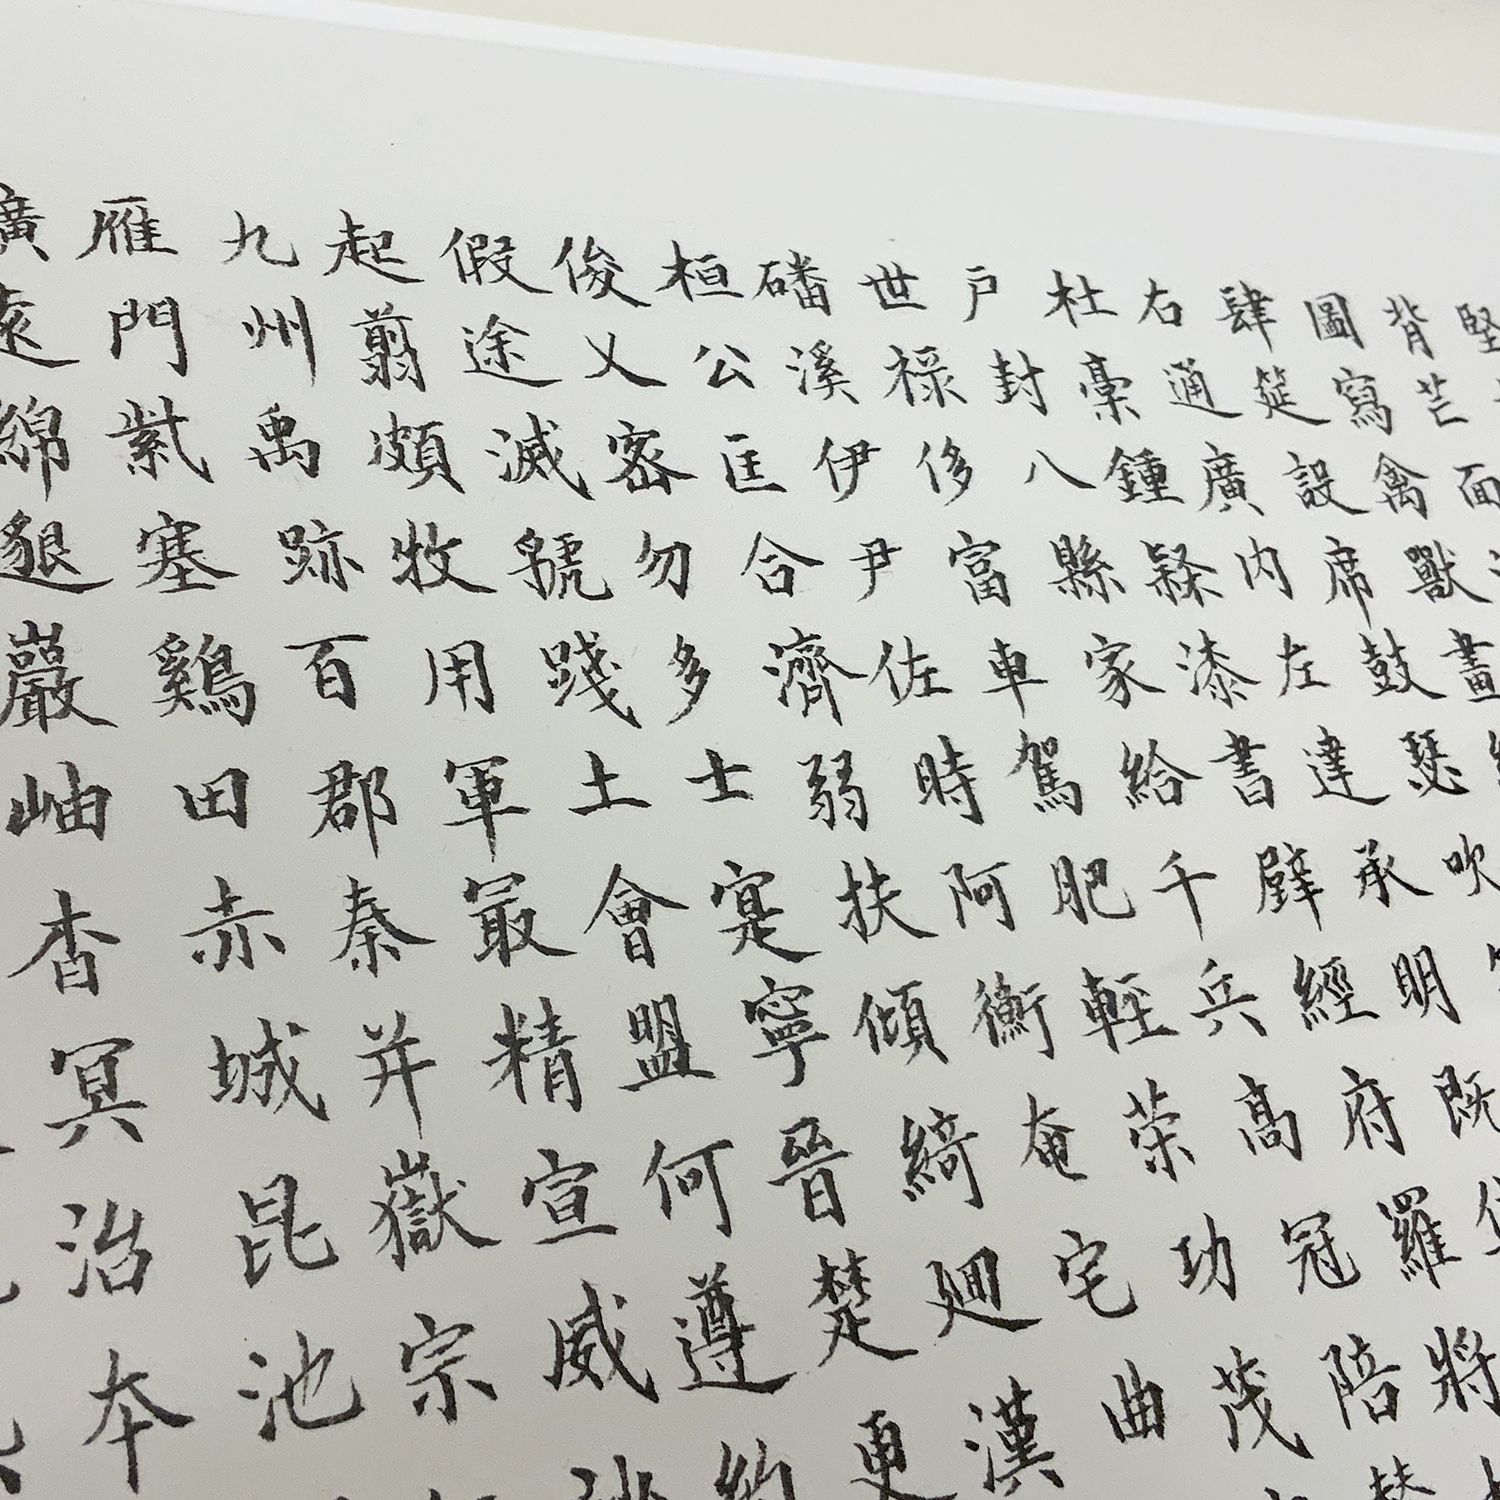 堅
背芒面
圖寫禽獸畫
肆筵設席鼓瑟吹
右通廣内左達承明既
杜稾鍾隸漆書壁經府羅將
户封八縣家給千兵高冠陪
世禄侈富車駕肥輕榮功茂
磻溪伊尹佐時阿衡奄宅曲
桓公匡合濟弱扶傾綺迴漢
俊乂密勿多士寔寧晉楚更
假途滅虢踐土會盟何遵約
起翦頗牧用軍最精宣威沙
九州禹跡百郡秦并嶽宗
雁門紫塞鷄田赤城昆池
曠遠綿邈巖岫杳冥治本